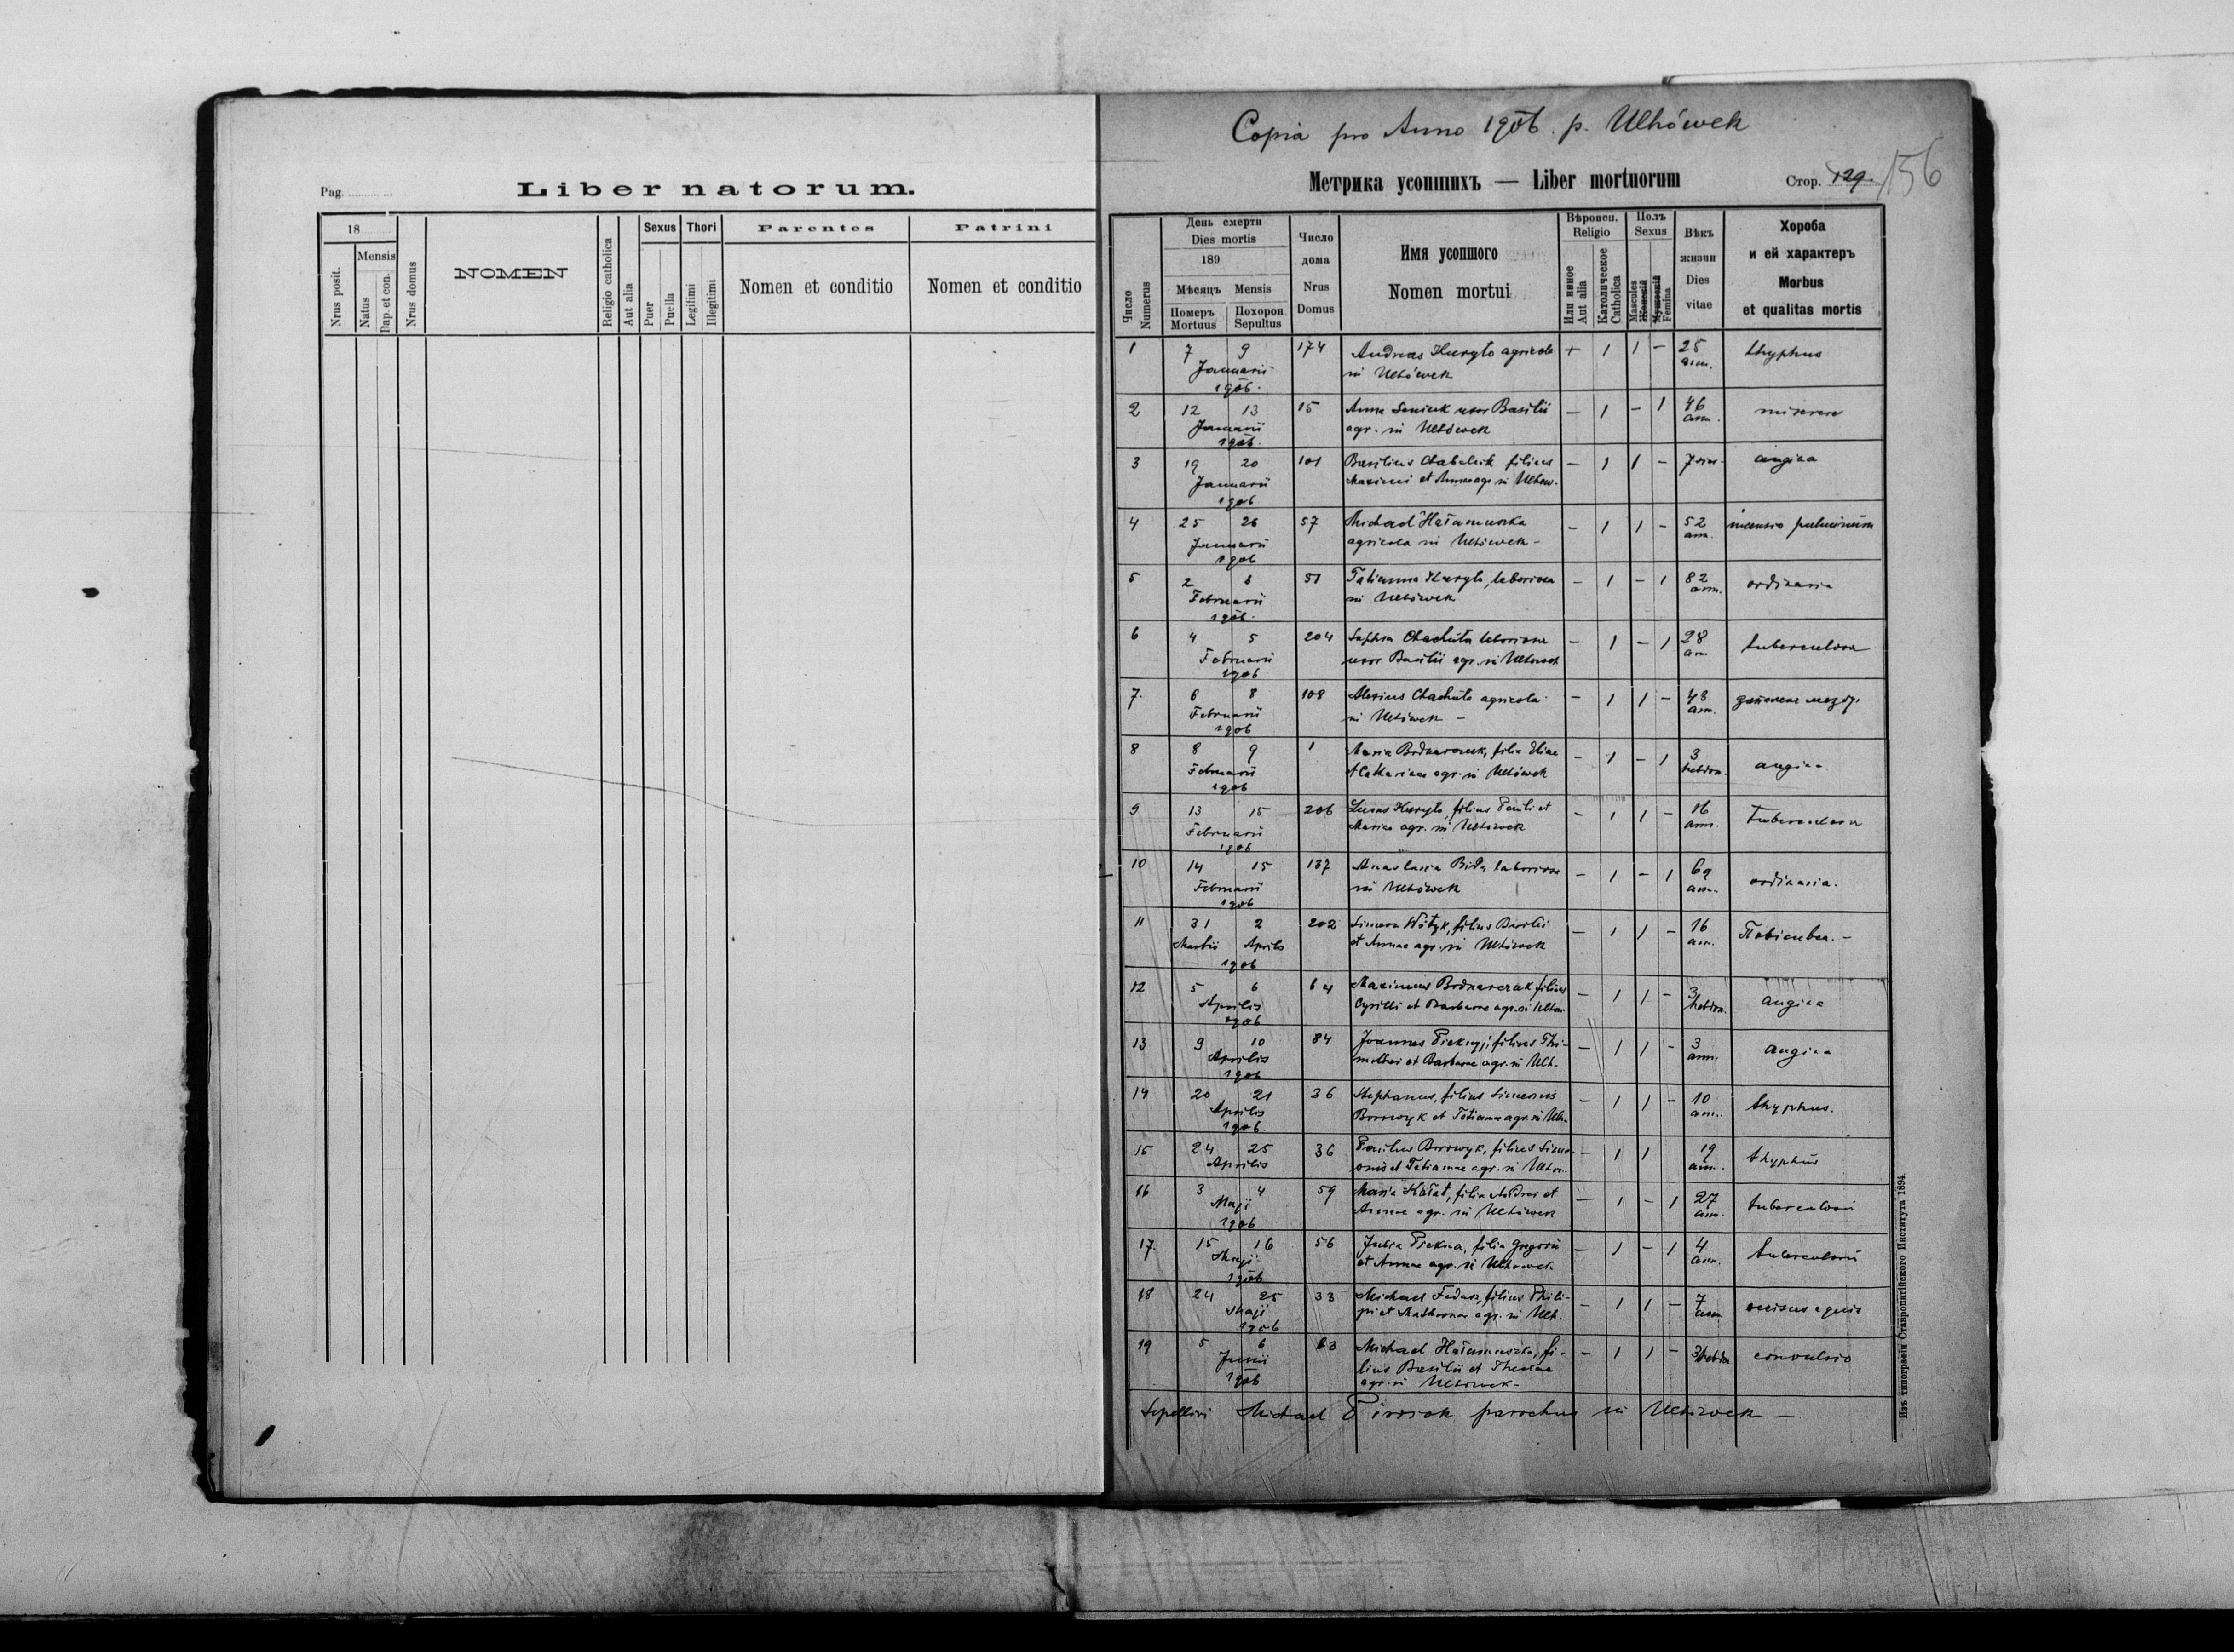 Pag.
Liber natorum.
18
Mensis
Nrus posit.
Natus
Bap. et con.
Nrus domus
NOMEN
Religio catholica
Aut alia
Sexus
Puer
Puella
Thori
Legitimi
Illegitimi
Parentes
Nomen et conditio
Patrini
Nomen et conditio
Copia pro Anno 1906. p. Uhówek
Метрика усопшихъ — Liber mortuorum
Стор. 129.
156
Число
Numerus
День смерти
Dies mortis
189
Мѣсяцъ Mensis
Померъ
Mortuus
Похорон.
Sepultus
Число
дома
Nrus
Domus
Имя усопшого
Nomen mortui
Вѣроисп.
Religio
Или инное
Aut alia
Католическое
Catholica
Полъ
Sexus
Mascules
Femina
Вѣкъ
жизни
Dies
vitae
Хороба
и ей характеръ
Morbus
et qualitas mortis
1 7 9 174 Andreas Huryło agricola + 1 1 - 25 thyphus
Januarii in Uhówek ann.
1906.
2 12 13 15 Anna uxor Basilii - 1 - 1 46 miserere
Januarii agr. in Uhówek ann.
1906.
3 19 20 101 Basilius filius - 1 1 - 7 angina
Januarii Maximi et Annae agr. in
1906
4 25 26 57 Michael - 1 1 - 52 pulmonum
Januarii agricola in Uhówek - ann.
1906
5 2 51 Tatianna Huryło, laboriosa - 1 - 1 82 ordinaria
Februarii in Uhówek ann.
1906.
6 4 5 204 Chachuła laboriosa - 1 - 1 28 tuberculosa
Februarii uxor Basilii agr. in Uhówek
1906
7. 6 8 108 Alexius Chachuła agricola - 1 1 - 48
Februarii in Uhówek - ann.
1906
8 8 9 1 Bodnarczuk, filia Eliae - 1 - 1 3 angina
Februarii et Catharinae agr. in Uhówek hebdom.
1906
9 13 15 206 Lucas Huryło, filius Pauli et - 1 1 - 16 tuberculosa
Februarii Mariae agr. in Uhówek ann.
1906
10 14 15 137 Anastasia Bida laboriosa - 1 - 1 69 ordinaria.
Februarii in Uhówek ann.
1906
11 31 2 202 Simeon filius Basilii - 1 1 - 16
Martii Aprilis et Annae agr. in Uhówek ann.
1906
12 5 6 64 Maximus Bodnarczuk filius - 1 1 - 3 angina
Aprilis Cyrilli et Barbarae agr. in hebdom.
1906
13 9 10 84 Joannes filius Thi- - 1 1 - 3 angina
Aprilis mothei et Barbarae agr. in Uh. ann.
1906
14 20 21 36 Stephanus, filius Simeonis - 1 1 - 10 thyphus.
Aprilis Borowyk et Tatiannae agr. in Uh. ann.
1906.
15 24 25 36 Paulus Borowyk, filius Sime- - 1 1 19 thyphus
Aprilis onis et Tatiannae agr. in ann.
16 3 4 59 Maria filia Andreae et - 1 - 1 27
Maji Annae agr. in Uhówek ann.
1906
17. 15 16 56 Julia Piekna, filia Gregorii - 1 - 1 4
Maji et Annae agr. in Uhówek ann.
1906
18 24 25 33 Michael filius Phili- - 1 1 - 7 occisus equis
Maji pi et agr. in Uh. ann.
1906
19 5 6 Michael fi- - 1 1 - 3 convulsio
Junii lius Basilii et
1906 agr. in Uhówek -
Sepelivi Michael parochus in Uhówek —
Изъ типографіи Ставропигійского Института 1894